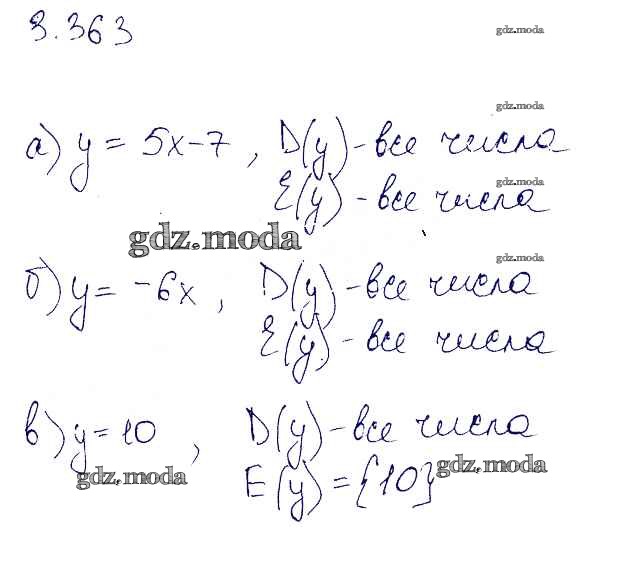 3.363
gdz.moda
gdz.moda
а) y = 5x-7, D(y)-все числа
gdz.moda
E(y) - все числа
gdz.moda
gdz.moda
б) y = -6x, D(y)-все числа
E(y) - все числа
в) y = 10, D(y)-все числа
gdz.moda
gdz.moda
E(y) = {10}